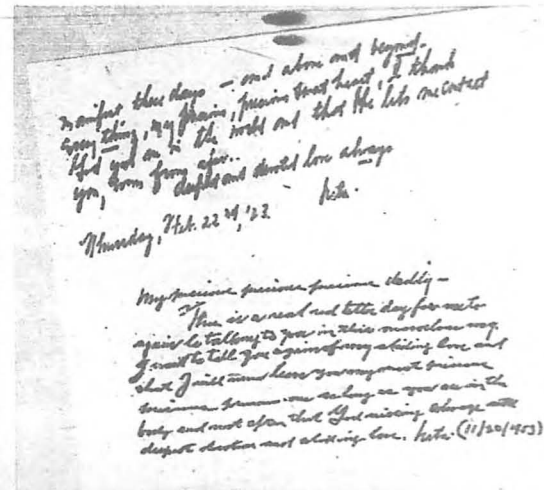 manifest these days — and above and beyond
every thing, my precious, precious sweet heart, I thank
God you are in the world and that He lets me contact
you, even from afar..
deepest and devoted love always
Thursday, Feb. 22nd, '23
My precious precious precious daddy —
This is a real red letter day for me to
again be talking to you in this marvelous way
I want to tell you again of my abiding love and
that I will never leave you my most precious
precious precious one as long as you are in the
body and not after that God willing always with
deepest devotion and abiding love. (11/20/1953)